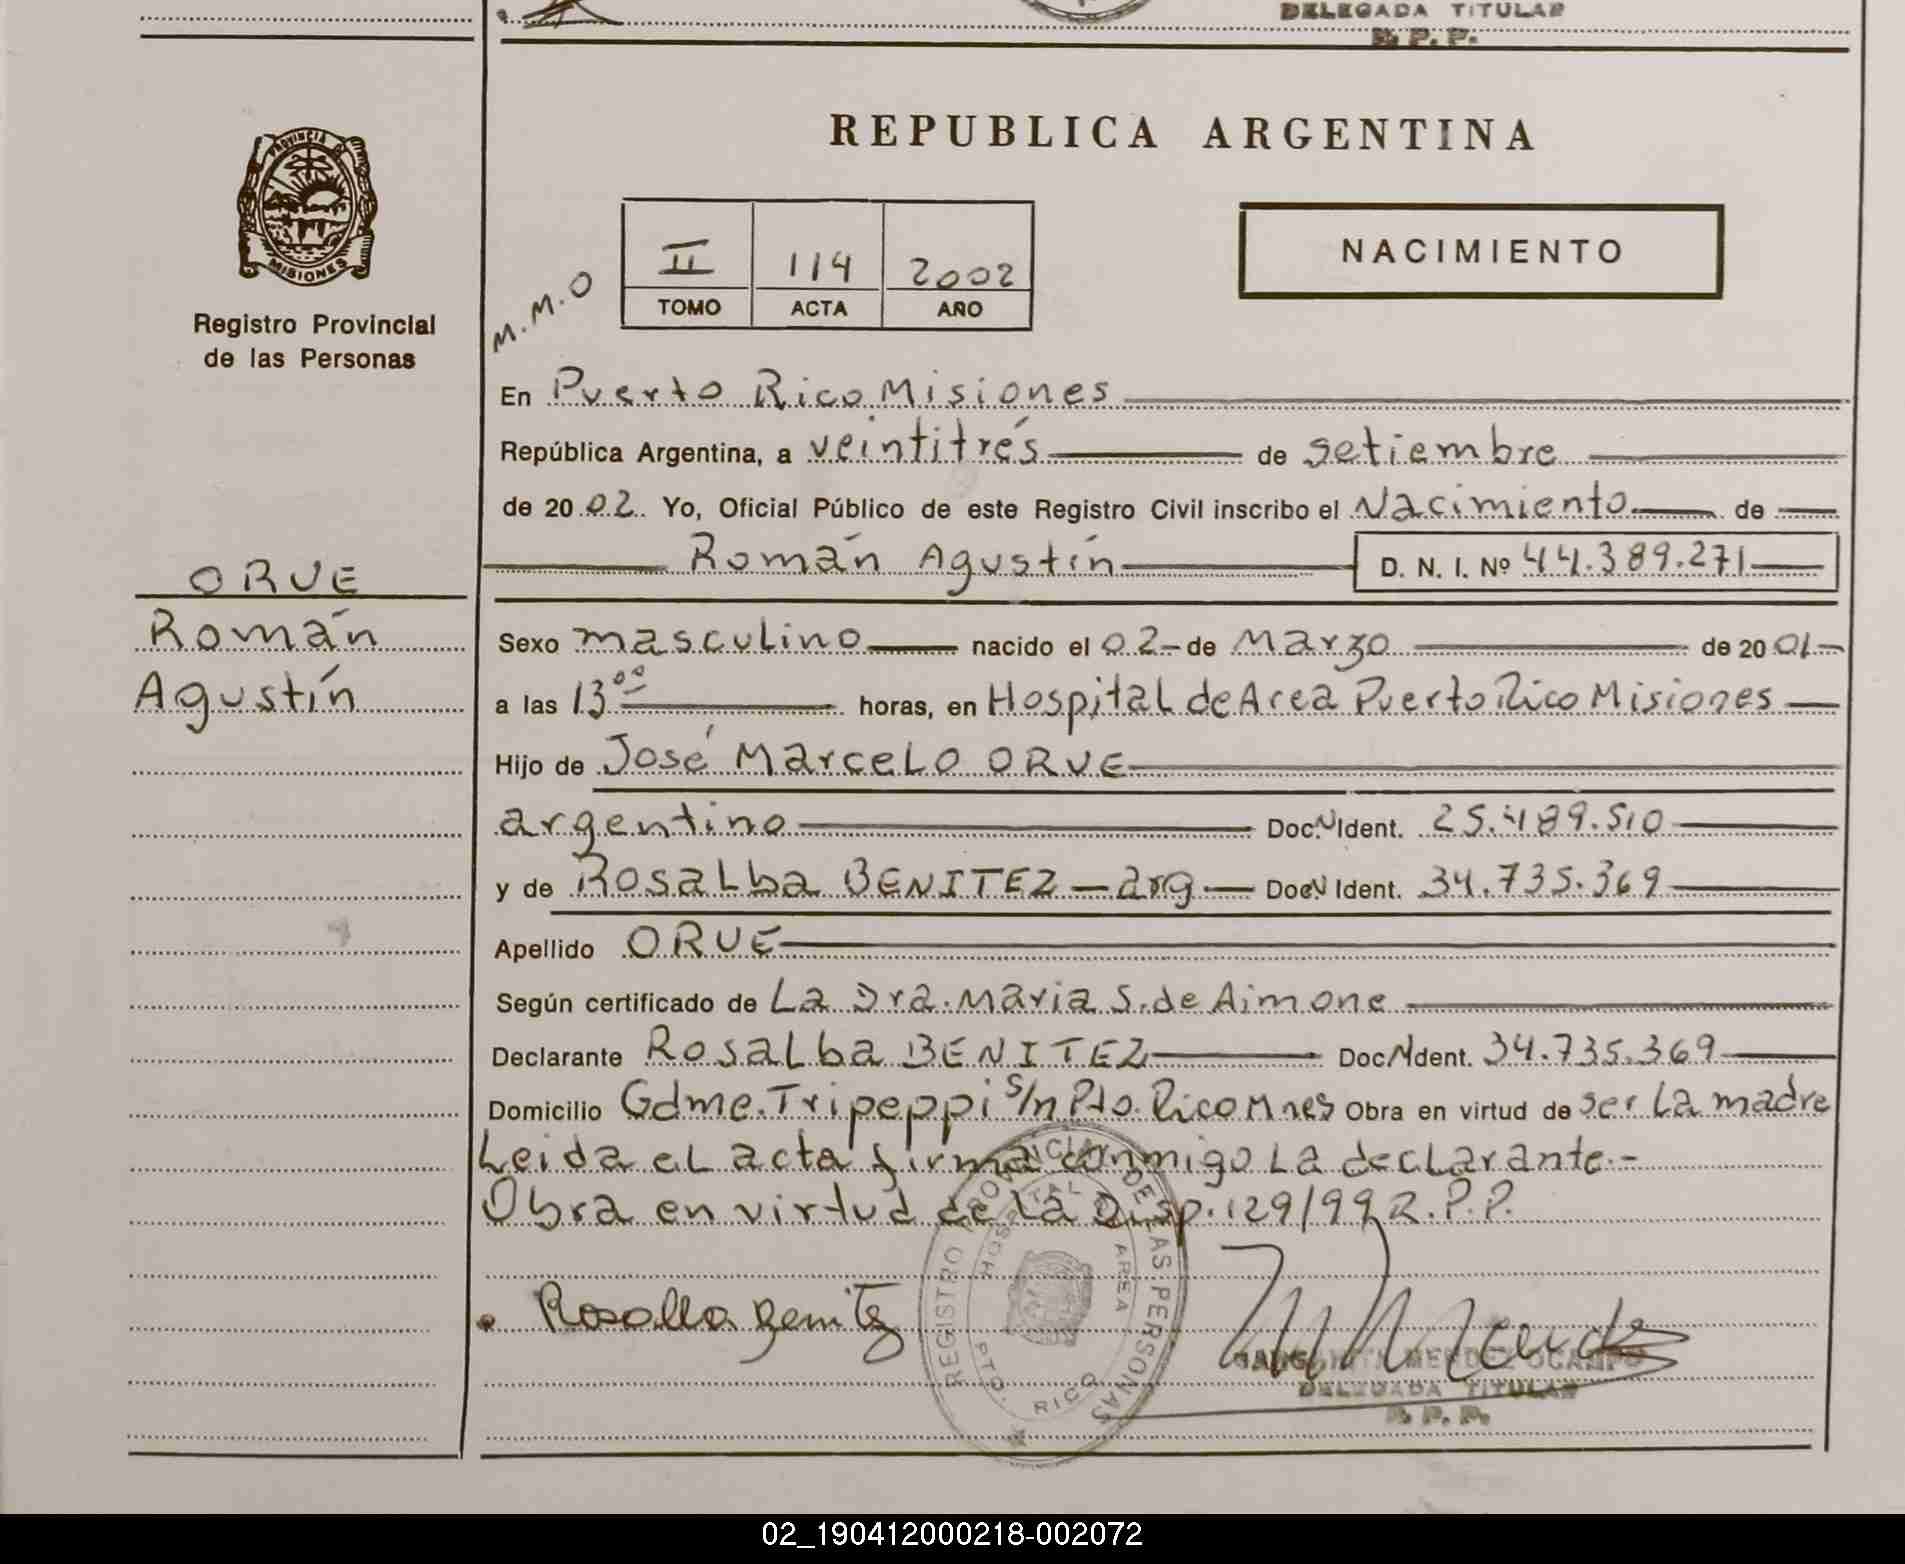 DELEGADA TITULAR
R. P. P.
PROVINCIA DE
MISIONES
Registro Provincial
de las Personas
REPUBLICA ARGENTINA
NACIMIENTO
II 114 2002
TOMO ACTA AÑO
M.M.O
En Puerto Rico Misiones
República Argentina, a veintitrés de setiembre
de 2002. Yo, Oficial Público de este Registro Civil inscribo el Nacimiento de
Román Agustín D. N. I. Nº 44.389.271
ORUE
Román
Agustín
Sexo masculino nacido el 02 de Marzo de 2001
a las 13 00 horas, en Hospital de Area Puerto Rico Misiones
Hijo de José Marcelo ORUE
argentino Doc. N Ident. 25.489.510
y de Rosalba BENITEZ - arg. Doc. N Ident. 34.735.369
Apellido ORUE
Según certificado de La Dra. Maria S. de Aimone
Declarante Rosalba BENITEZ Doc. N Ident. 34.735.369
Domicilio Gdme. Tripeppi s/n Pto. Rico Mnes Obra en virtud de ser La madre
Leida el acta firma conmigo La declarante.-
Obra en virtud de La Disp. 129/99 R.P.P.
Rosalba Benitez
REGISTRO PROVINCIAL DE LAS PERSONAS
HOSPITAL AREA
PTO. RICO
MARGARITA MENDEZ OCAMPO
DELEGADA TITULAR
R. P. P.
02_190412000218-002072